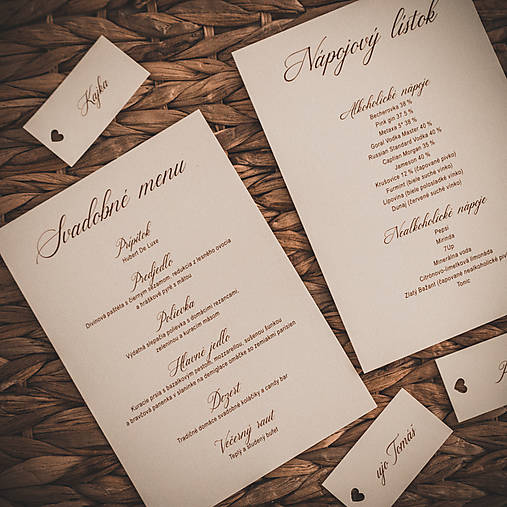 Kajka
Svadobné menu
Prípitok
Hubert De Luxe
Predjedlo
Divinová paštéta s čiernym sezamom, redukcia z lesného ovocia
a hráškové pyré s mätou
Polievka
Výdatná slepačia polievka s domácimi rezancami,
zeleninou a kuracím mäsom
Hlavné jedlo
Kuracie prsia s bazalkovým pestom, mozzarellou, sušenou šunkou
a bravčová panenka v slaninke na demiglace omáčke so zemiakmi parisien
Dezert
Tradičné domáce svadobné koláčiky a candy bar
Večerný raut
Teplý a studený bufet
Nápojový lístok
Alkoholické nápoje
Becherovka 38 %
Pink pin 37,5 %
Metaxa 3* 38 %
Goral Vodka Master 40 %
Russian Standard Vodka 40 %
Captian Morgan 35 %
Jameson 40 %
Krušovice 12 % (čapované pivko)
Furmint (biele suché vínko)
Lipovina (biele polosladké vínko)
Dunaj (červené suché vínko)
Nealkoholické nápoje
Pepsi
Mirinda
7Up
Minerálna voda
Citrónovo-limetková limonáda
Zlatý Bažant (čapované nealkoholické pivo
Tonic
ujo Tomáš
P